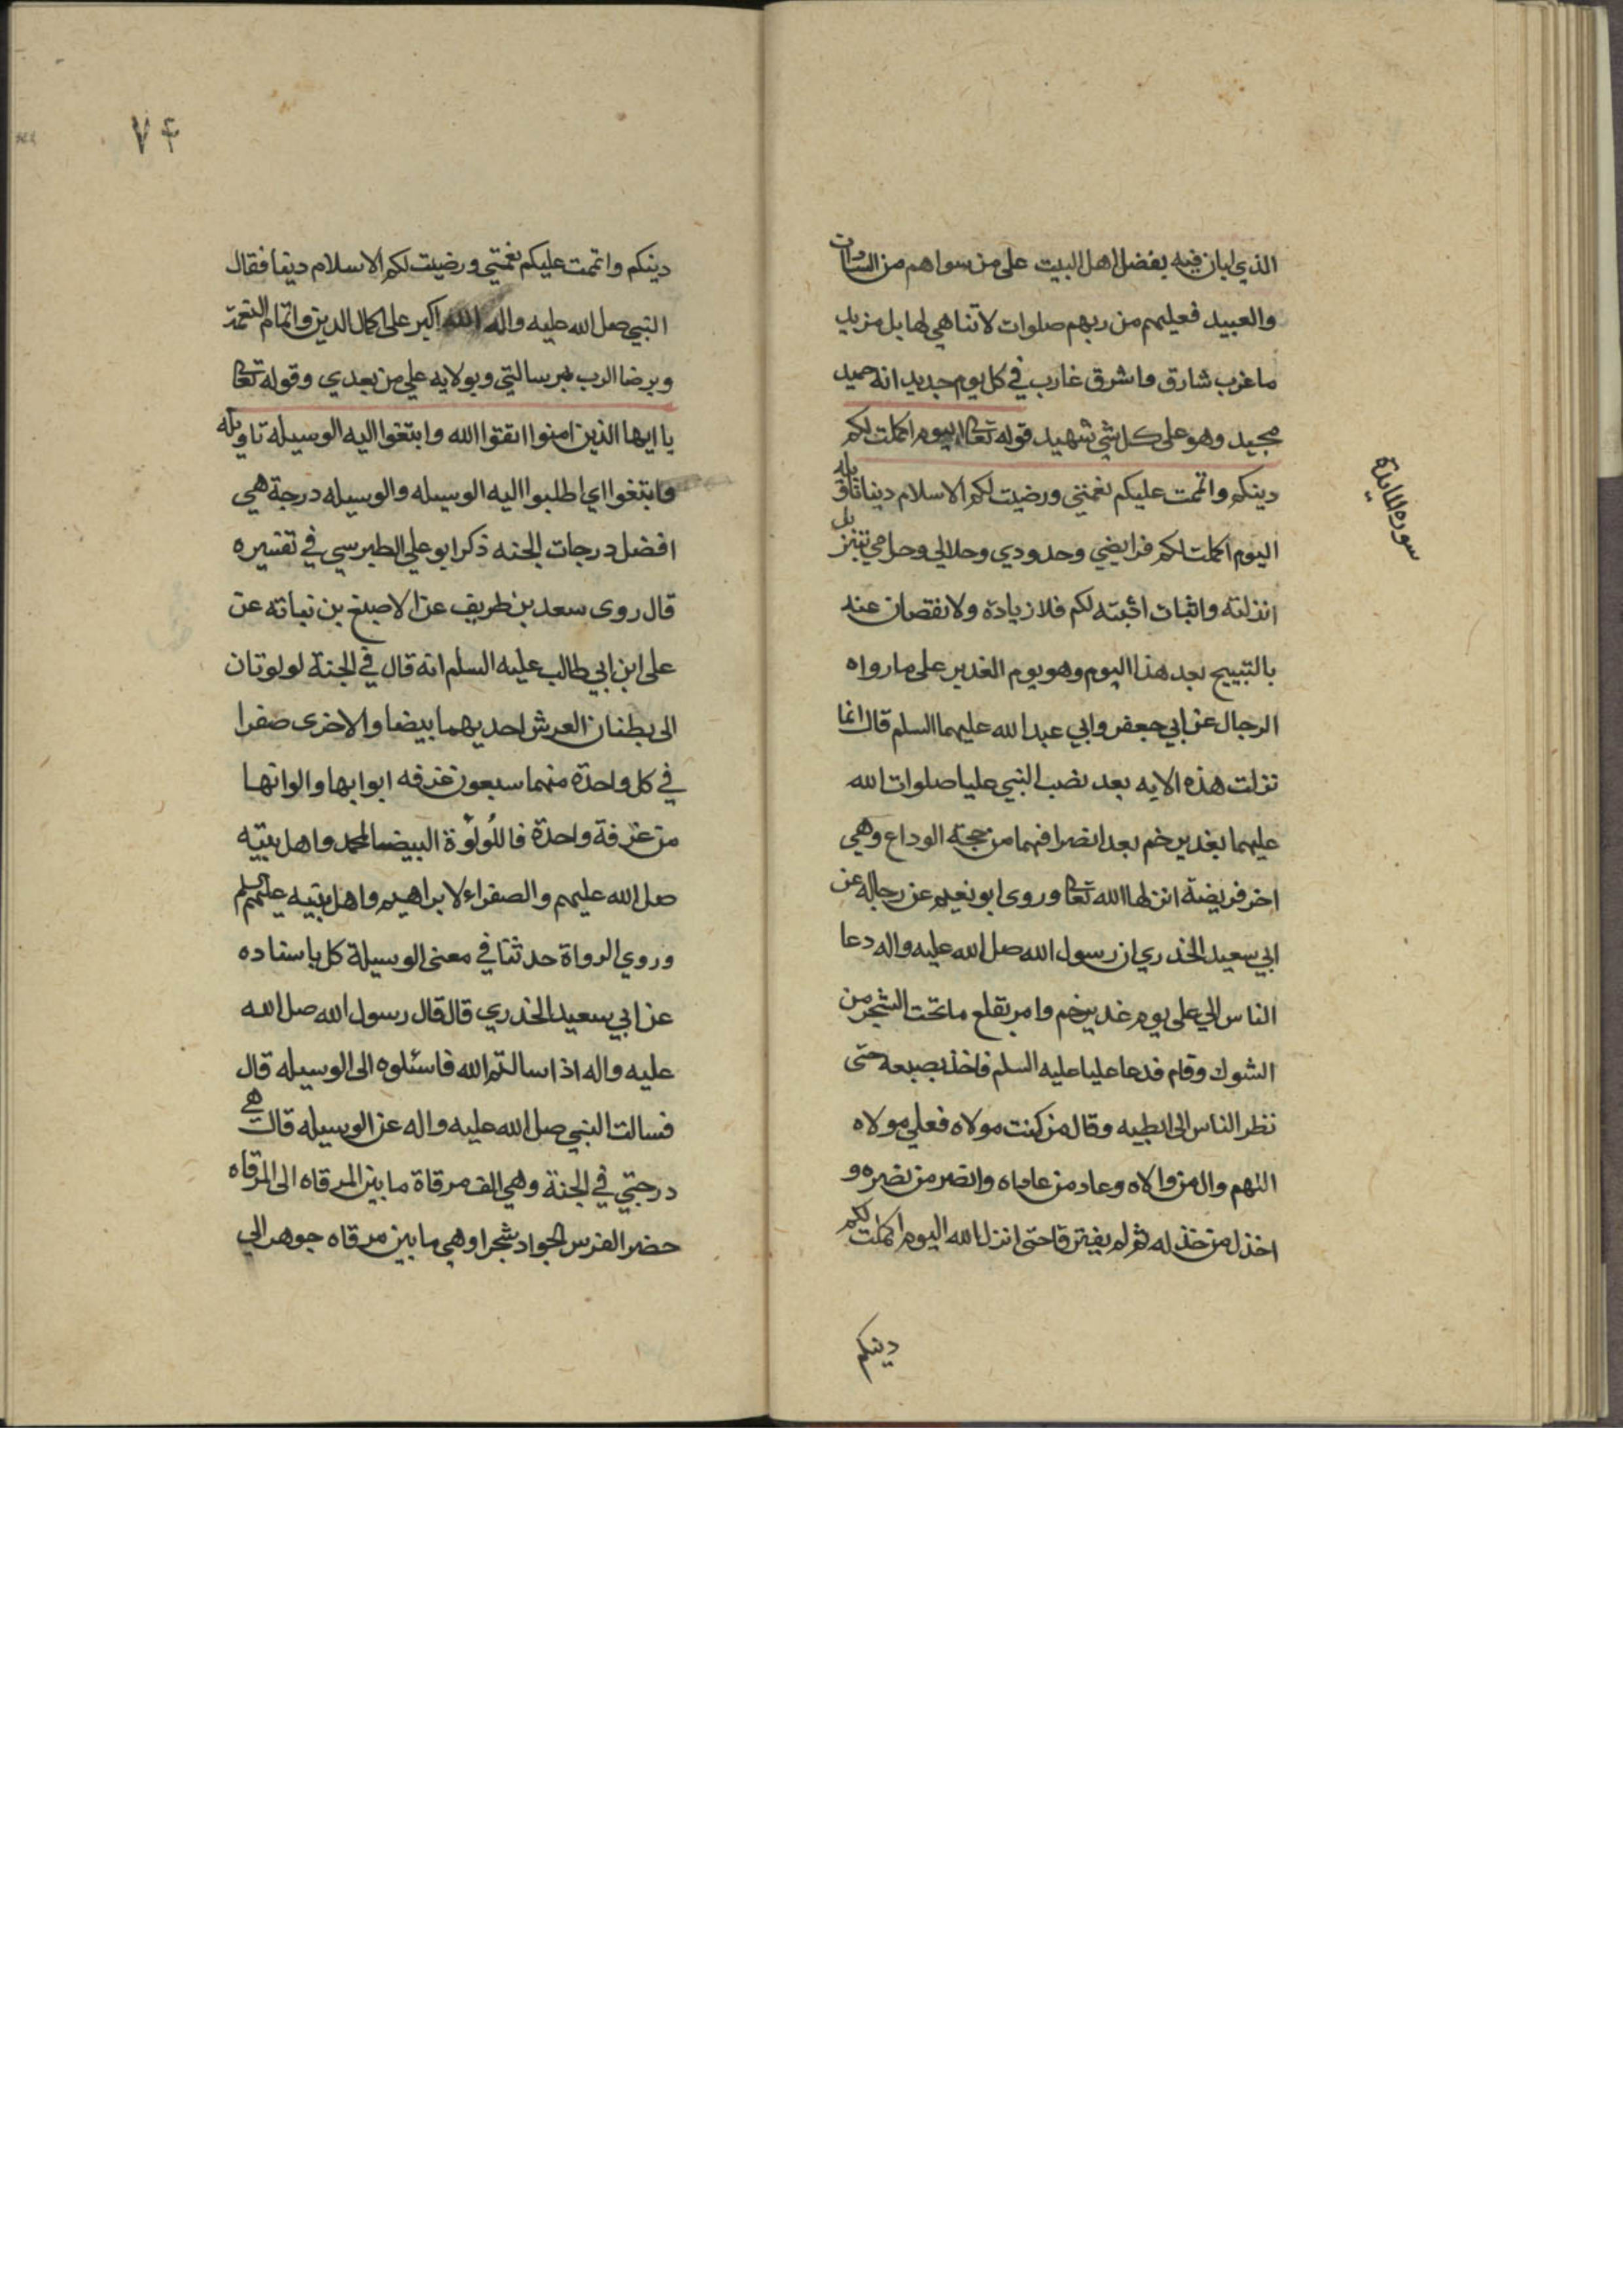 الذي ابان فيه بفضل اهل البيت على من سواهم من السادات
والعبيد فعليهم من ربهم صلوات لا تناهي لها بل مزيد
ما غرب شارق وما شرق غارب في كل يوم جديد انه حميد
مجيد وهو على كل شي شهيد قوله تعالى اليوم اكملت لكم
دينكم واتممت عليكم نعمتي ورضيت لكم الاسلام دينا تاويله
اليوم اكملت لكم فرايضي وحدودي وحلالي وحرامي بتنزيل
انزلته واثبات اثبته لكم فلا زيادة ولا نقصان عنه
بعد هذا اليوم وهو يوم الغدير على ما رواه
الرجال عن ابي جعفر وابي عبد الله عليهما السلم قال انما
نزلت هذه الايه بعد نصب النبي عليا صلوات الله
عليهما بغدير خم بعد انصرافهما من حجة الوداع وهي
اخر فريضة انزلها الله تعالى وروى ابو نعيم عن رجاله عن
ابي سعيد الخدري ان رسول الله صل الله عليه واله دعا
الناس الي علي يوم غدير خم وامر بقلع ما تحت الشجر من
الشوك وقام فدعا عليا عليه السلم فاخذ بضبعه حتى
نظر الناس الى ابطيه وقال من كنت مولاه فعلي مولاه
اللهم وال من والاه وعاد من عاداه وانصر من نصره و
اخذل من خذله ثم لم يفترقا حتى انزل الله اليوم اكملت لكم
دينكم
سورة المايدة
٧۴
دينكم واتممت عليكم نعمتي ورضيت لكم الاسلام دينا فقال
النبي صل الله عليه واله الله اكبر على اكمال الدين واتمام النعمة
وبرضا الرب برسالتي وبولايه علي من بعدي وقوله تعالى
يا ايها الذين امنوا اتقوا الله وابتغوا اليه الوسيله تاويله
وابتغوا اي اطلبوا اليه الوسيله والوسيله درجة هي
افضل درجات الجنه ذكر ابو علي الطبرسي في تفسيره
قال روى سعد بن طريف عن الاصبغ بن نباته عن
على ابن ابي طالب عليه السلم انه قال في الجنة لولوتان
الى بطنان العرش احديهما بيضا والاخرى صفرا
في كل واحدة منهما سبعون غرفه ابوابها والوانها
من غرفة واحدة فاللولوة البيضا لمحمد واهل بيته
صل الله عليهم والصفراء لابراهيم واهل بيته عليهم السلم
وروي الرواة حدثنا في معنى الوسيلة كل باسناده
عن ابي سعيد الخدري قال قال رسول الله صل الله
عليه واله اذا سالتم الله فاسئلوه الى الوسيله قال
فسالت النبي صل الله عليه واله عن الوسيله قال هي
درجتي في الجنة وهي الف مرقاة ما بين المرقاه الى المرقاه
حضر الفرس الجواد شجرا وهي ما بين مرقاه جوهر الي